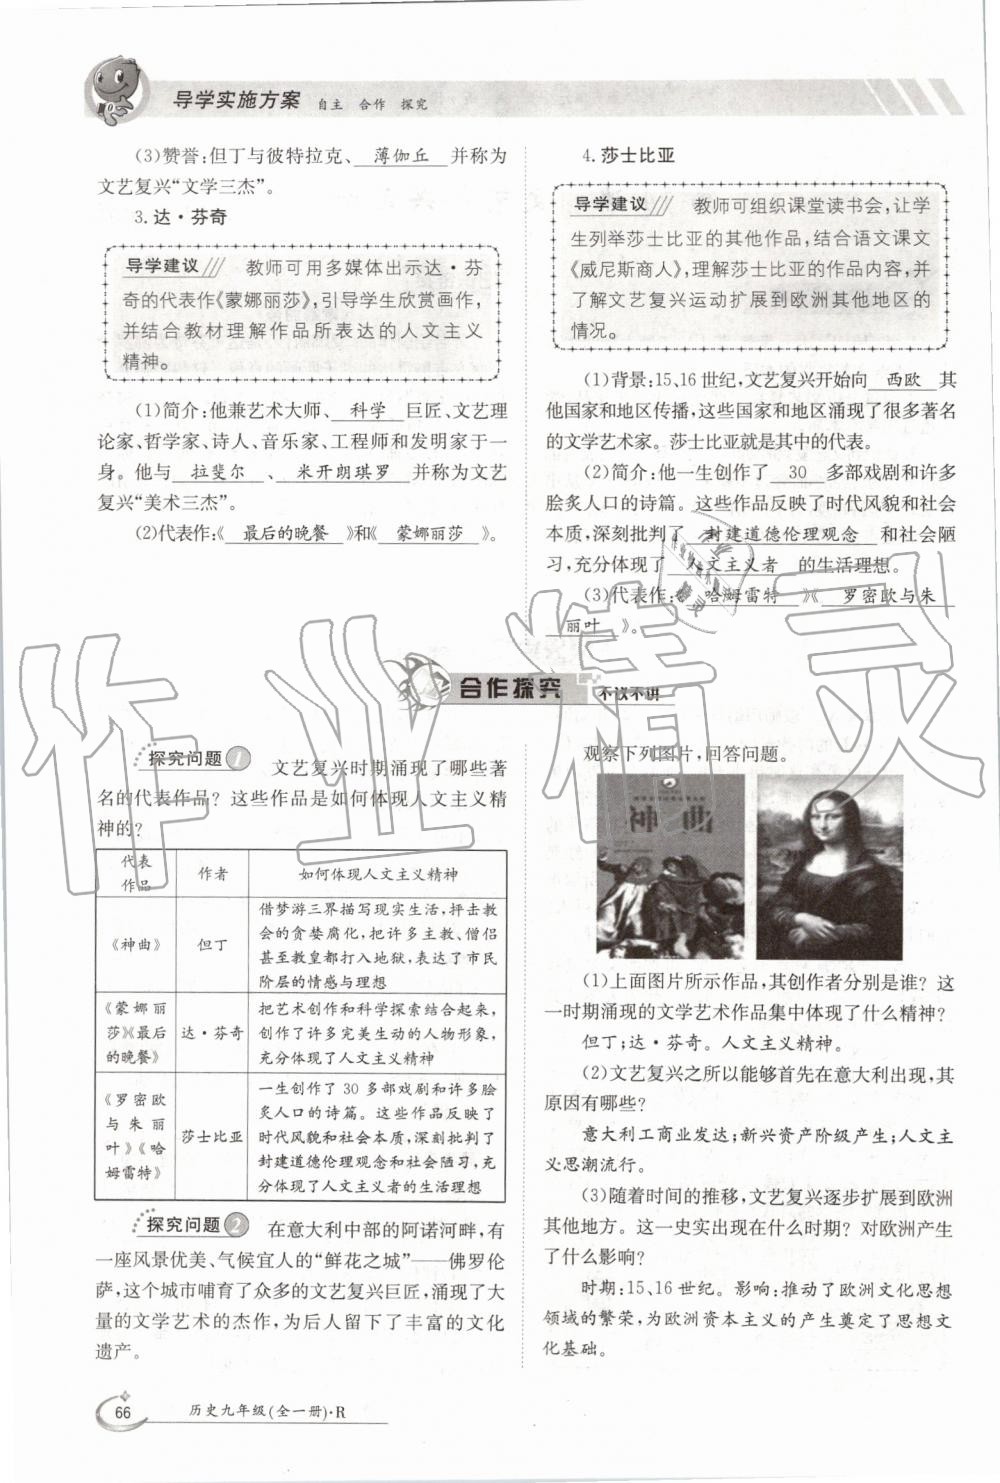 导学实施方案 自主 合作 探究
(3)赞誉:但丁与彼特拉克、 薄伽丘 并称为
文艺复兴“文学三杰”。
3. 达·芬奇
导学建议 教师可用多媒体出示达·芬
奇的代表作《蒙娜丽莎》,引导学生欣赏画作,
并结合教材理解作品所表达的人文主义
精神。
(1)简介:他兼艺术大师、 科学 巨匠、文艺理
论家、哲学家、诗人、音乐家、工程师和发明家于一
身。他与 拉斐尔 、 米开朗琪罗 并称为文艺
复兴“美术三杰”。
(2)代表作:《 最后的晚餐 》和《 蒙娜丽莎 》。
4. 莎士比亚
导学建议 教师可组织课堂读书会,让学
生列举莎士比亚的其他作品,结合语文课文
《威尼斯商人》,理解莎士比亚的作品内容,并
了解文艺复兴运动扩展到欧洲其他地区的
情况。
(1)背景:15、16世纪,文艺复兴开始向 西欧 其
他国家和地区传播,这些国家和地区涌现了很多著名
的文学艺术家。莎士比亚就是其中的代表。
(2)简介:他一生创作了 30 多部戏剧和许多
脍炙人口的诗篇。这些作品反映了时代风貌和社会
本质,深刻批判了 封建道德伦理观念 和社会陋
习,充分体现了 人文主义者 的生活理想。
(3)代表作:《 哈姆雷特 》《 罗密欧与朱
丽叶 》。
合作探究 不议不讲
探究问题1 文艺复兴时期涌现了哪些著
名的代表作品? 这些作品是如何体现人文主义精
神的?
代表作品 作者 如何体现人文主义精神
《神曲》 但丁 借梦游三界描写现实生活,抨击教
会的贪婪腐化,把许多主教、僧侣
甚至教皇都打入地狱,表达了市民
阶层的情感与理想
《蒙娜丽莎》《最后的晚餐》 达·芬奇 把艺术创作和科学探索结合起来,
创作了许多完美生动的人物形象,
充分体现了人文主义精神
《罗密欧与朱丽叶》《哈姆雷特》 莎士比亚 一生创作了30多部戏剧和许多脍
炙人口的诗篇。这些作品反映了
时代风貌和社会本质,深刻批判了
封建道德伦理观念和社会陋习,充
分体现了人文主义者的生活理想
探究问题2 在意大利中部的阿诺河畔,有
一座风景优美、气候宜人的“鲜花之城”——佛罗伦
萨,这个城市哺育了众多的文艺复兴巨匠,涌现了大
量的文学艺术的杰作,为后人留下了丰富的文化
遗产。
观察下列图片,回答问题。
神曲
(1)上面图片所示作品,其创作者分别是谁? 这
一时期涌现的文学艺术作品集中体现了什么精神?
但丁;达·芬奇。人文主义精神。
(2)文艺复兴之所以能够首先在意大利出现,其
原因有哪些?
意大利工商业发达;新兴资产阶级产生;人文主
义思潮流行。
(3)随着时间的推移,文艺复兴逐步扩展到欧洲
其他地方。这一史实出现在什么时期? 对欧洲产生
了什么影响?
时期:15、16世纪。影响:推动了欧洲文化思想
领域的繁荣,为欧洲资本主义的产生奠定了思想文
化基础。
66 历史九年级(全一册)·R
作业精灵